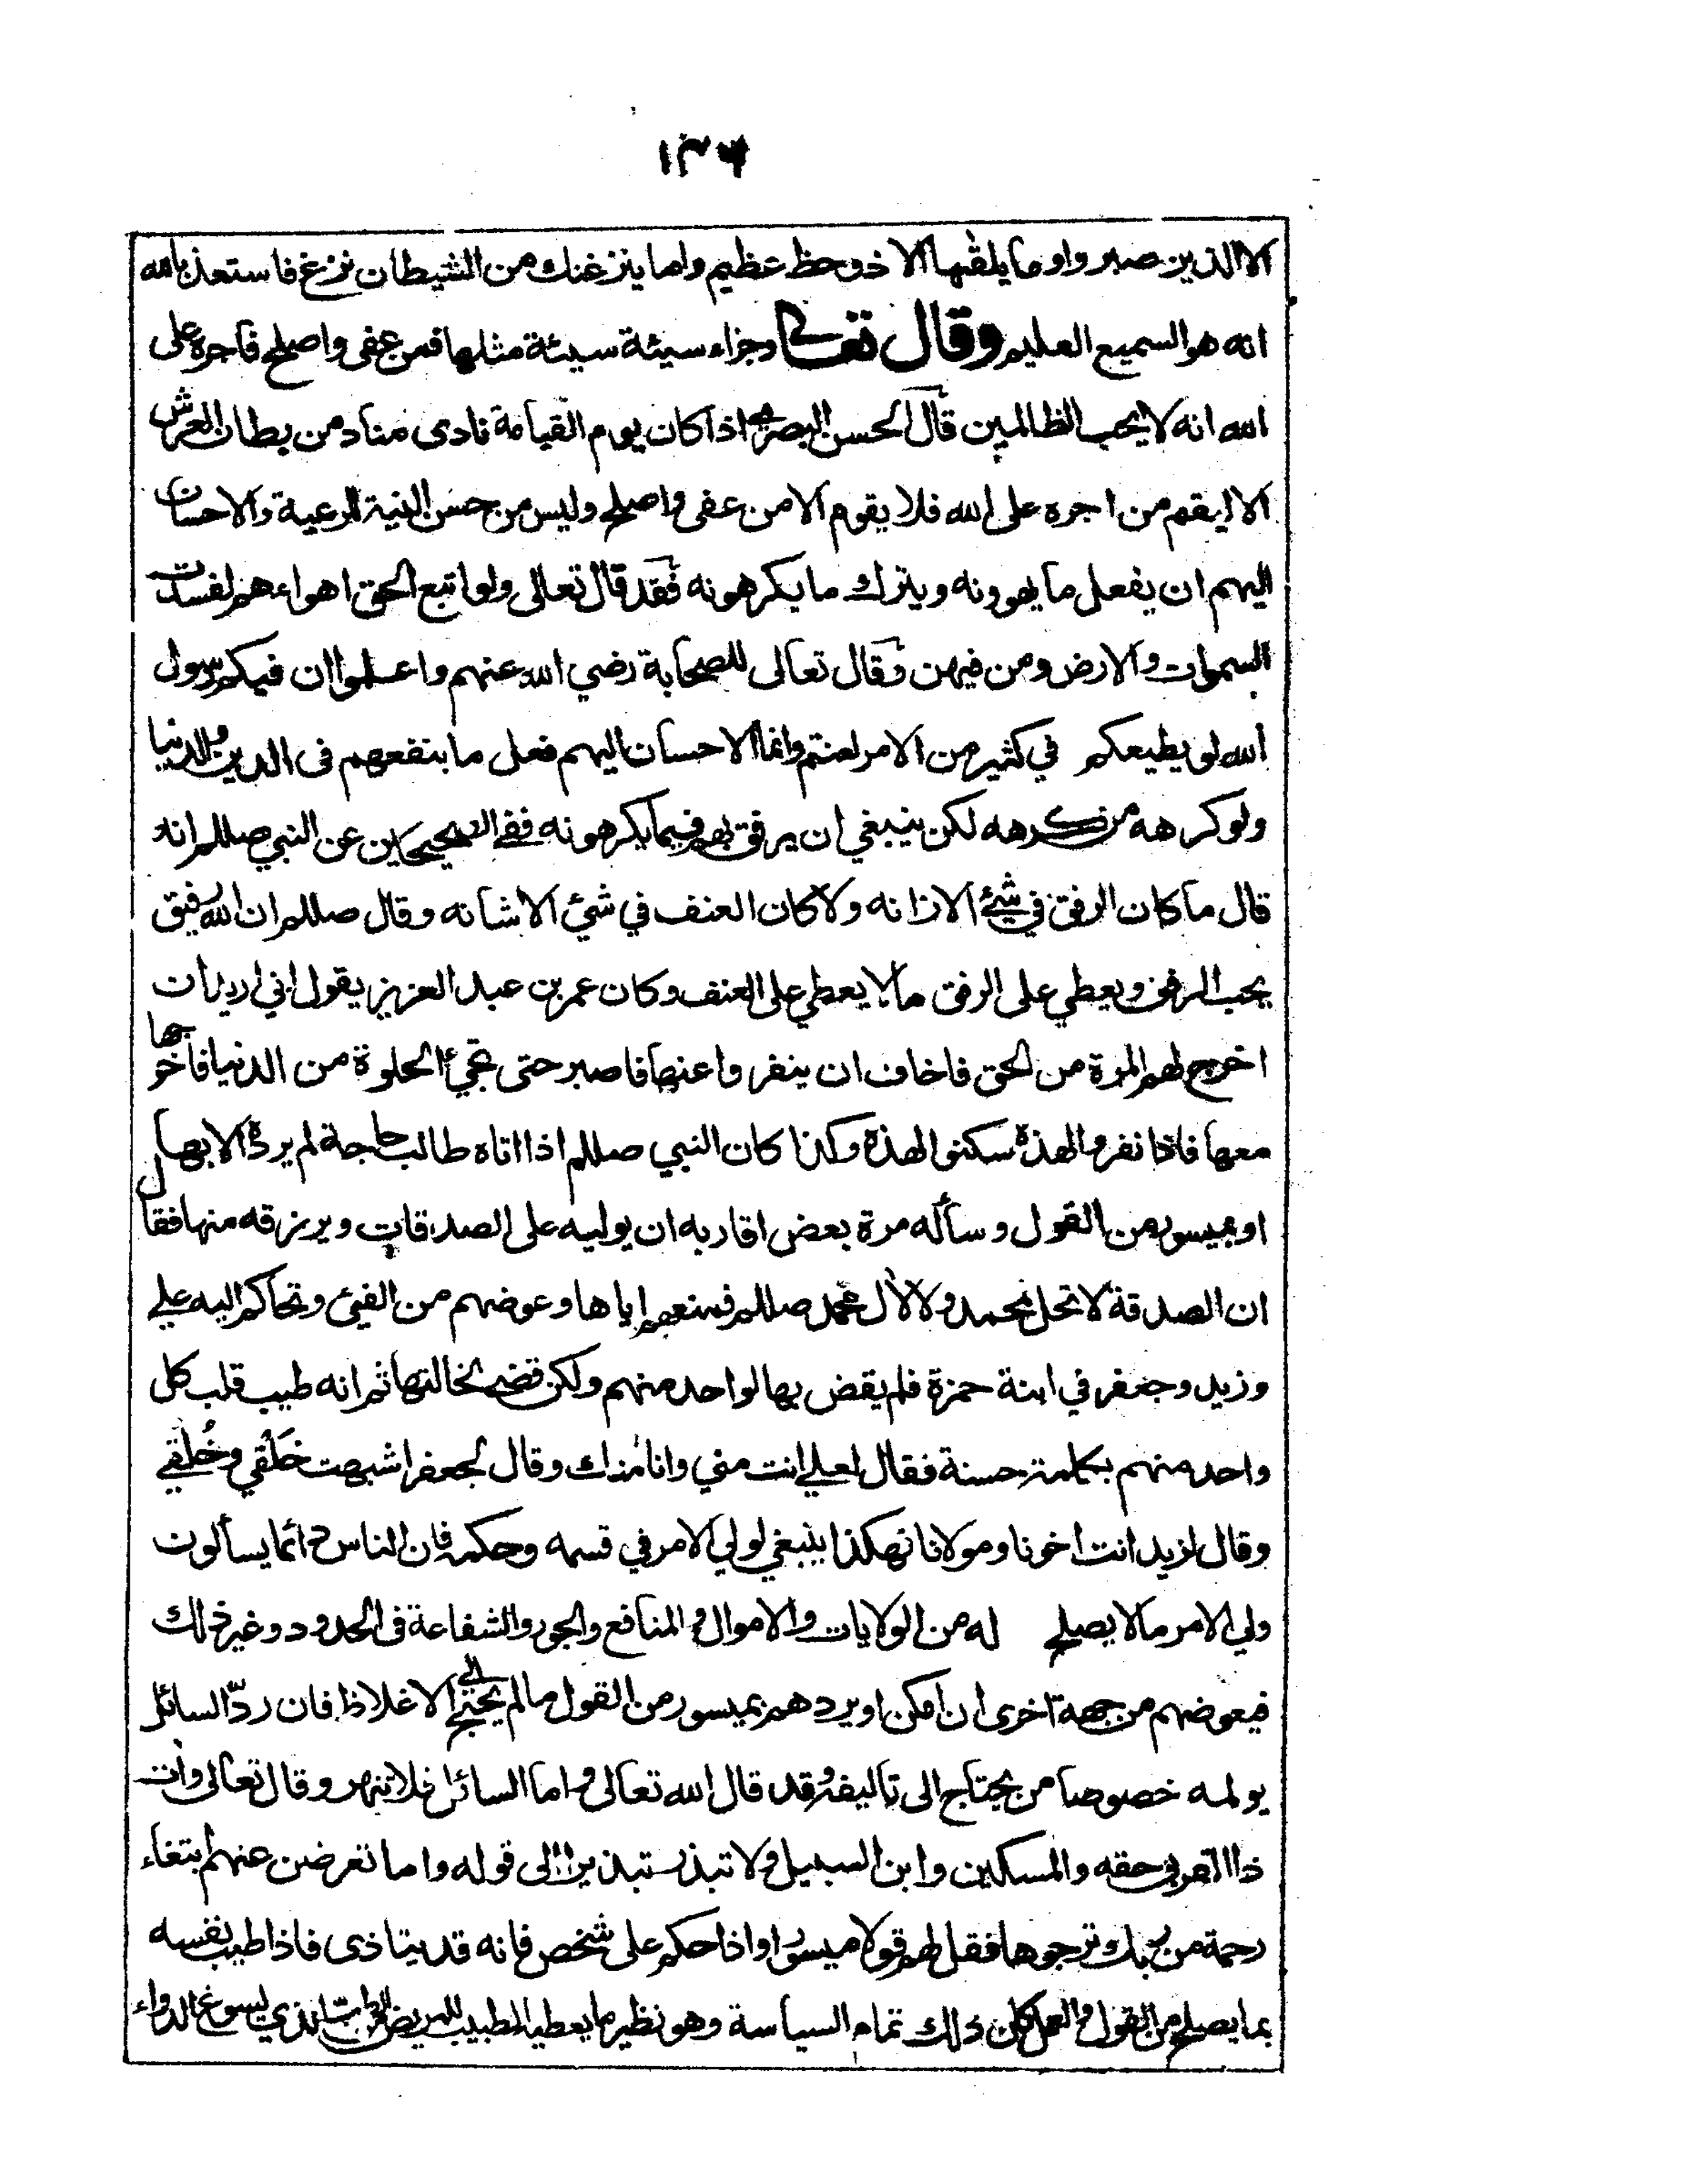 ١٣٦
الا الذين صبروا وما يلقٰها الا ذو حظ عظيم واما ينزغنك من الشيطان نزغ فاستعذ بالله
انه هو السميع العليم وقال تعالى وجزاء سيئة سيئة مثلها فمن عفى واصلح فاجره على
الله انه لا يحب الظالمين قال الحسن البصري اذا كان يوم القيامة نادى مناد من بطان العرش
الا ليقم من اجره على الله فلا يقوم الا من عفى واصلح وليس من حسن النية للرعية والاحسان
اليهم ان يفعل ما يهوونه ويترك ما يكرهونه فقد قال تعالى ولو اتبع الحق اهواءهم لفسدت
السموات والارض ومن فيهن وقال تعالى للصحابة رضي الله عنهم واعلموا ان فيكم رسول
الله لو يطيعكم في كثير من الامر لعنتم وانما الاحسان اليهم فعل ما ينفعهم فى الدين والدنيا
ولو كرهه من كرهه لكن ينبغي ان يرفق بهم فيما يكرهونه ففي الصحيحين عن النبي صللم انه
قال ما كان الرفق في شيئ الا زانه ولا كان العنف في شيئ الا شانه وقال صللم ان الله رفيق
يحب الرفق ويعطي على الرفق ما لا يعطي على العنف وكان عمر بن عبد العزيز يقول اني اريد ان
اخرج لهم المرة من الحق فاخاف ان ينفروا عنها فاصبر حتى تجيئ الحلوة من الدنيا فاخرجها
معها فاذا نفروا لهذه سكنوا لهذه وكذا كان النبي صللم اذا اتاه طالب حاجة لم يرده الا بها
او بميسور من القول وسأله مرة بعض اقاربه ان يوليه على الصدقات ويرزقه منها فقال
ان الصدقة لا تحل لمحمد ولا لآل محمد صللم فمنعهم اياها وعوضهم من الفيئ وتحاكم اليه علي
وزيد وجعفر في ابنة حمزة فلم يقض بها لواحد منهم ولكن قضى بها لخالتها ثم انه طيب قلب كل
واحد منهم بكلمة حسنة فقال لعلي انت مني وانا منك وقال لجعفر اشبهت خَلْقي وخُلُقي
وقال لزيد انت اخونا ومولانا فهكذا ينبغي لولي الامر في قسمه وحكمه فان الناس دائما يسألون
ولي الامر ما لا يصلح له من الولايات والاموال والمنافع والجور والشفاعة فى الحدود وغير ذلك
فيعوضهم من جهة اخرى ان امكن او يردهم بميسور من القول ما لم يحتج الى الاغلاظ فان ردّ السائل
يولمه خصوصا من يحتاج الى تاليفه وقد قال الله تعالى واما السائل فلا تنهر وقال تعالى وات
ذا القربى حقه والمسكين وابن السبيل ولا تبذر تبذيرا الى قوله واما تعرضن عنهم ابتغاء
رحمة من ربك ترجوها فقل لهم قولا ميسورا واذا حكم على شخص فانه قد يتاذى فاذا طيب نفسه
بما يصلح من القول والعمل كان ذلك تمام السياسة وهو نظير ما يعطيه الطبيب للمريض الذي يسوغ الدواء